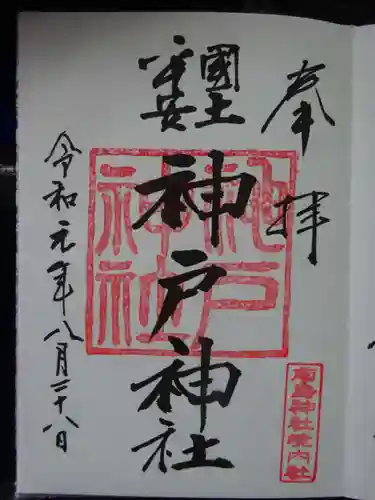 奉拝
國土
平安
神戸神社
神戸
神社
島神社境内社
令和元年八月二十八日